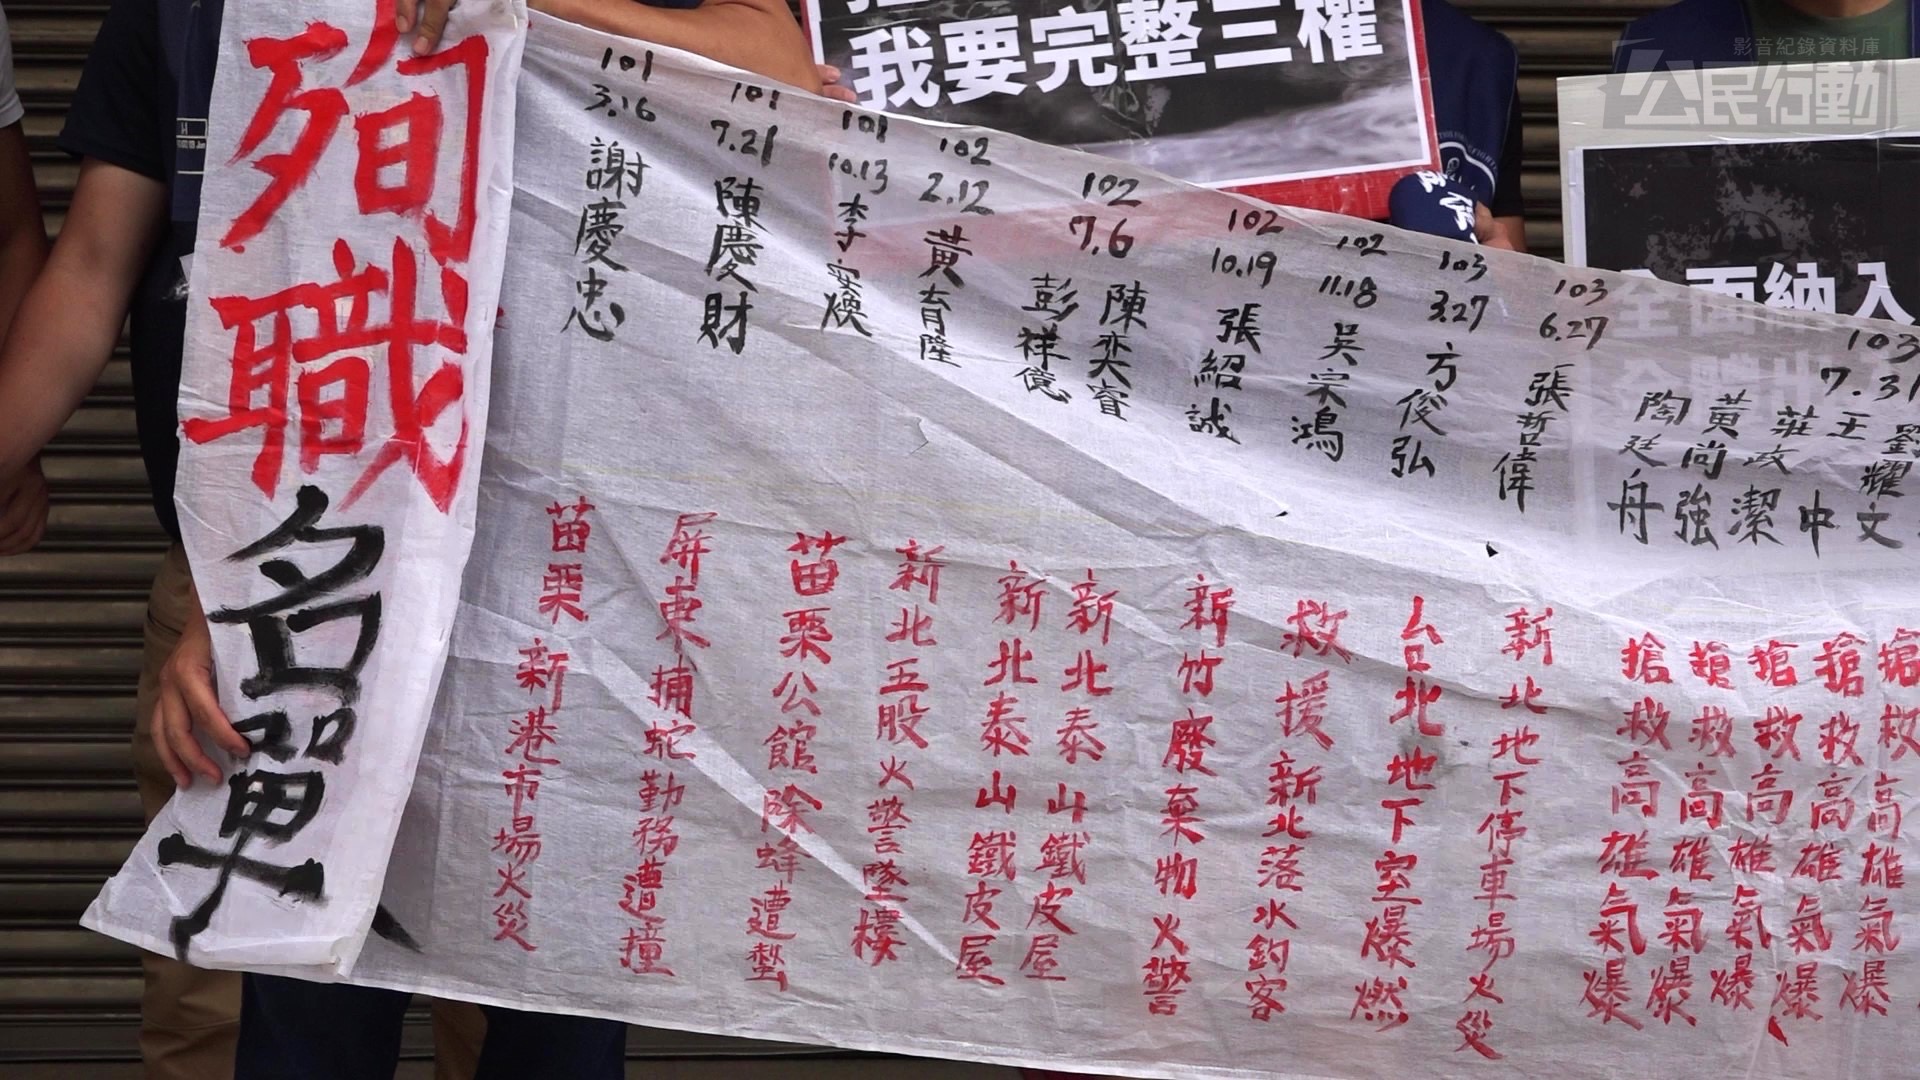 殉職名單
101
3.16
謝慶忠
苗栗新港市場火災
101
7.21
陳慶財
屏東捕蛇勤務遭撞
101
10.13
李宏煥
苗栗公館除蜂遭螫
102
2.12
黃育隆
新北五股火警墜樓
102
7.6
彭祥億
新北泰山鐵皮屋
陳奕睿
新北泰山鐵皮屋
102
10.19
張紹誠
新竹廢棄物火警
102
11.18
吳宗鴻
救援新北落水釣客
103
3.27
方俊弘
台北地下室爆燃
103
6.27
張哲偉
新北地下停車場火災
103
7.31
陶廷舟
搶救高雄氣爆
黃尚強
搶救高雄氣爆
莊政潔
搶救高雄氣爆
王中
搶救高雄氣爆
劉耀文
搶救高雄氣爆
我要完整三權
全面納入
影音紀錄資料庫
公民行動